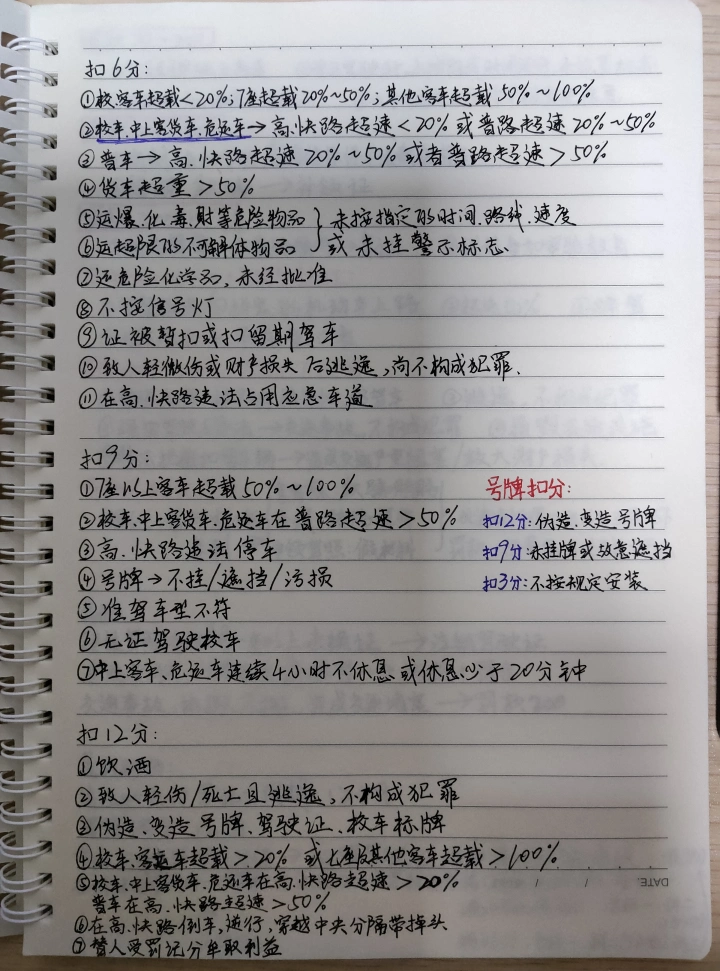 扣6分:
①校客车超载<20%;7座超载20%~50%;其他客车超载50%~100%
②校车.中上客货车.危运车→高.快路超速<20%或普路超速20%~50%
③普车→高.快路超速20%~50%或者普路超速>50%
④货车超重>50%
⑤运爆.化.毒.射等危险物品 } 未按指定的时间.路线.速度
⑥运超限的不可解体物品 } 或未挂警示标志.
⑦运危险化学品,未经批准
⑧不按信号灯
⑨证被暂扣或扣留期驾车
⑩致人轻微伤或财产损失后逃逸,尚不构成犯罪.
⑪在高.快路违法占用应急车道
扣9分:
①7座以上客车超载50%~100%
号牌扣分:
②校车.中上客货车.危运车在普路超速>50%
扣12分:伪造.变造号牌
③高.快路违法停车
扣9分:未挂牌或故意遮挡
④号牌→不挂/遮挡/污损
扣3分:不按规定安装
⑤准驾车型不符
⑥无证驾驶校车
⑦中上客车、危运车连续4小时不休息或休息少于20分钟
扣12分:
①饮酒
②致人轻伤/死亡且逃逸,不构成犯罪
③伪造.变造号牌.驾驶证.校车标牌
④校车.客运车超载>20%或七座及其他客车超载>100%
⑤校车.中上客货车.危运车在高.快路超速>20%
普车在高.快路超速>50%
⑥在高.快路倒车,逆行,穿越中央分隔带掉头
⑦替人受罚记分牟取利益
DATE. / /